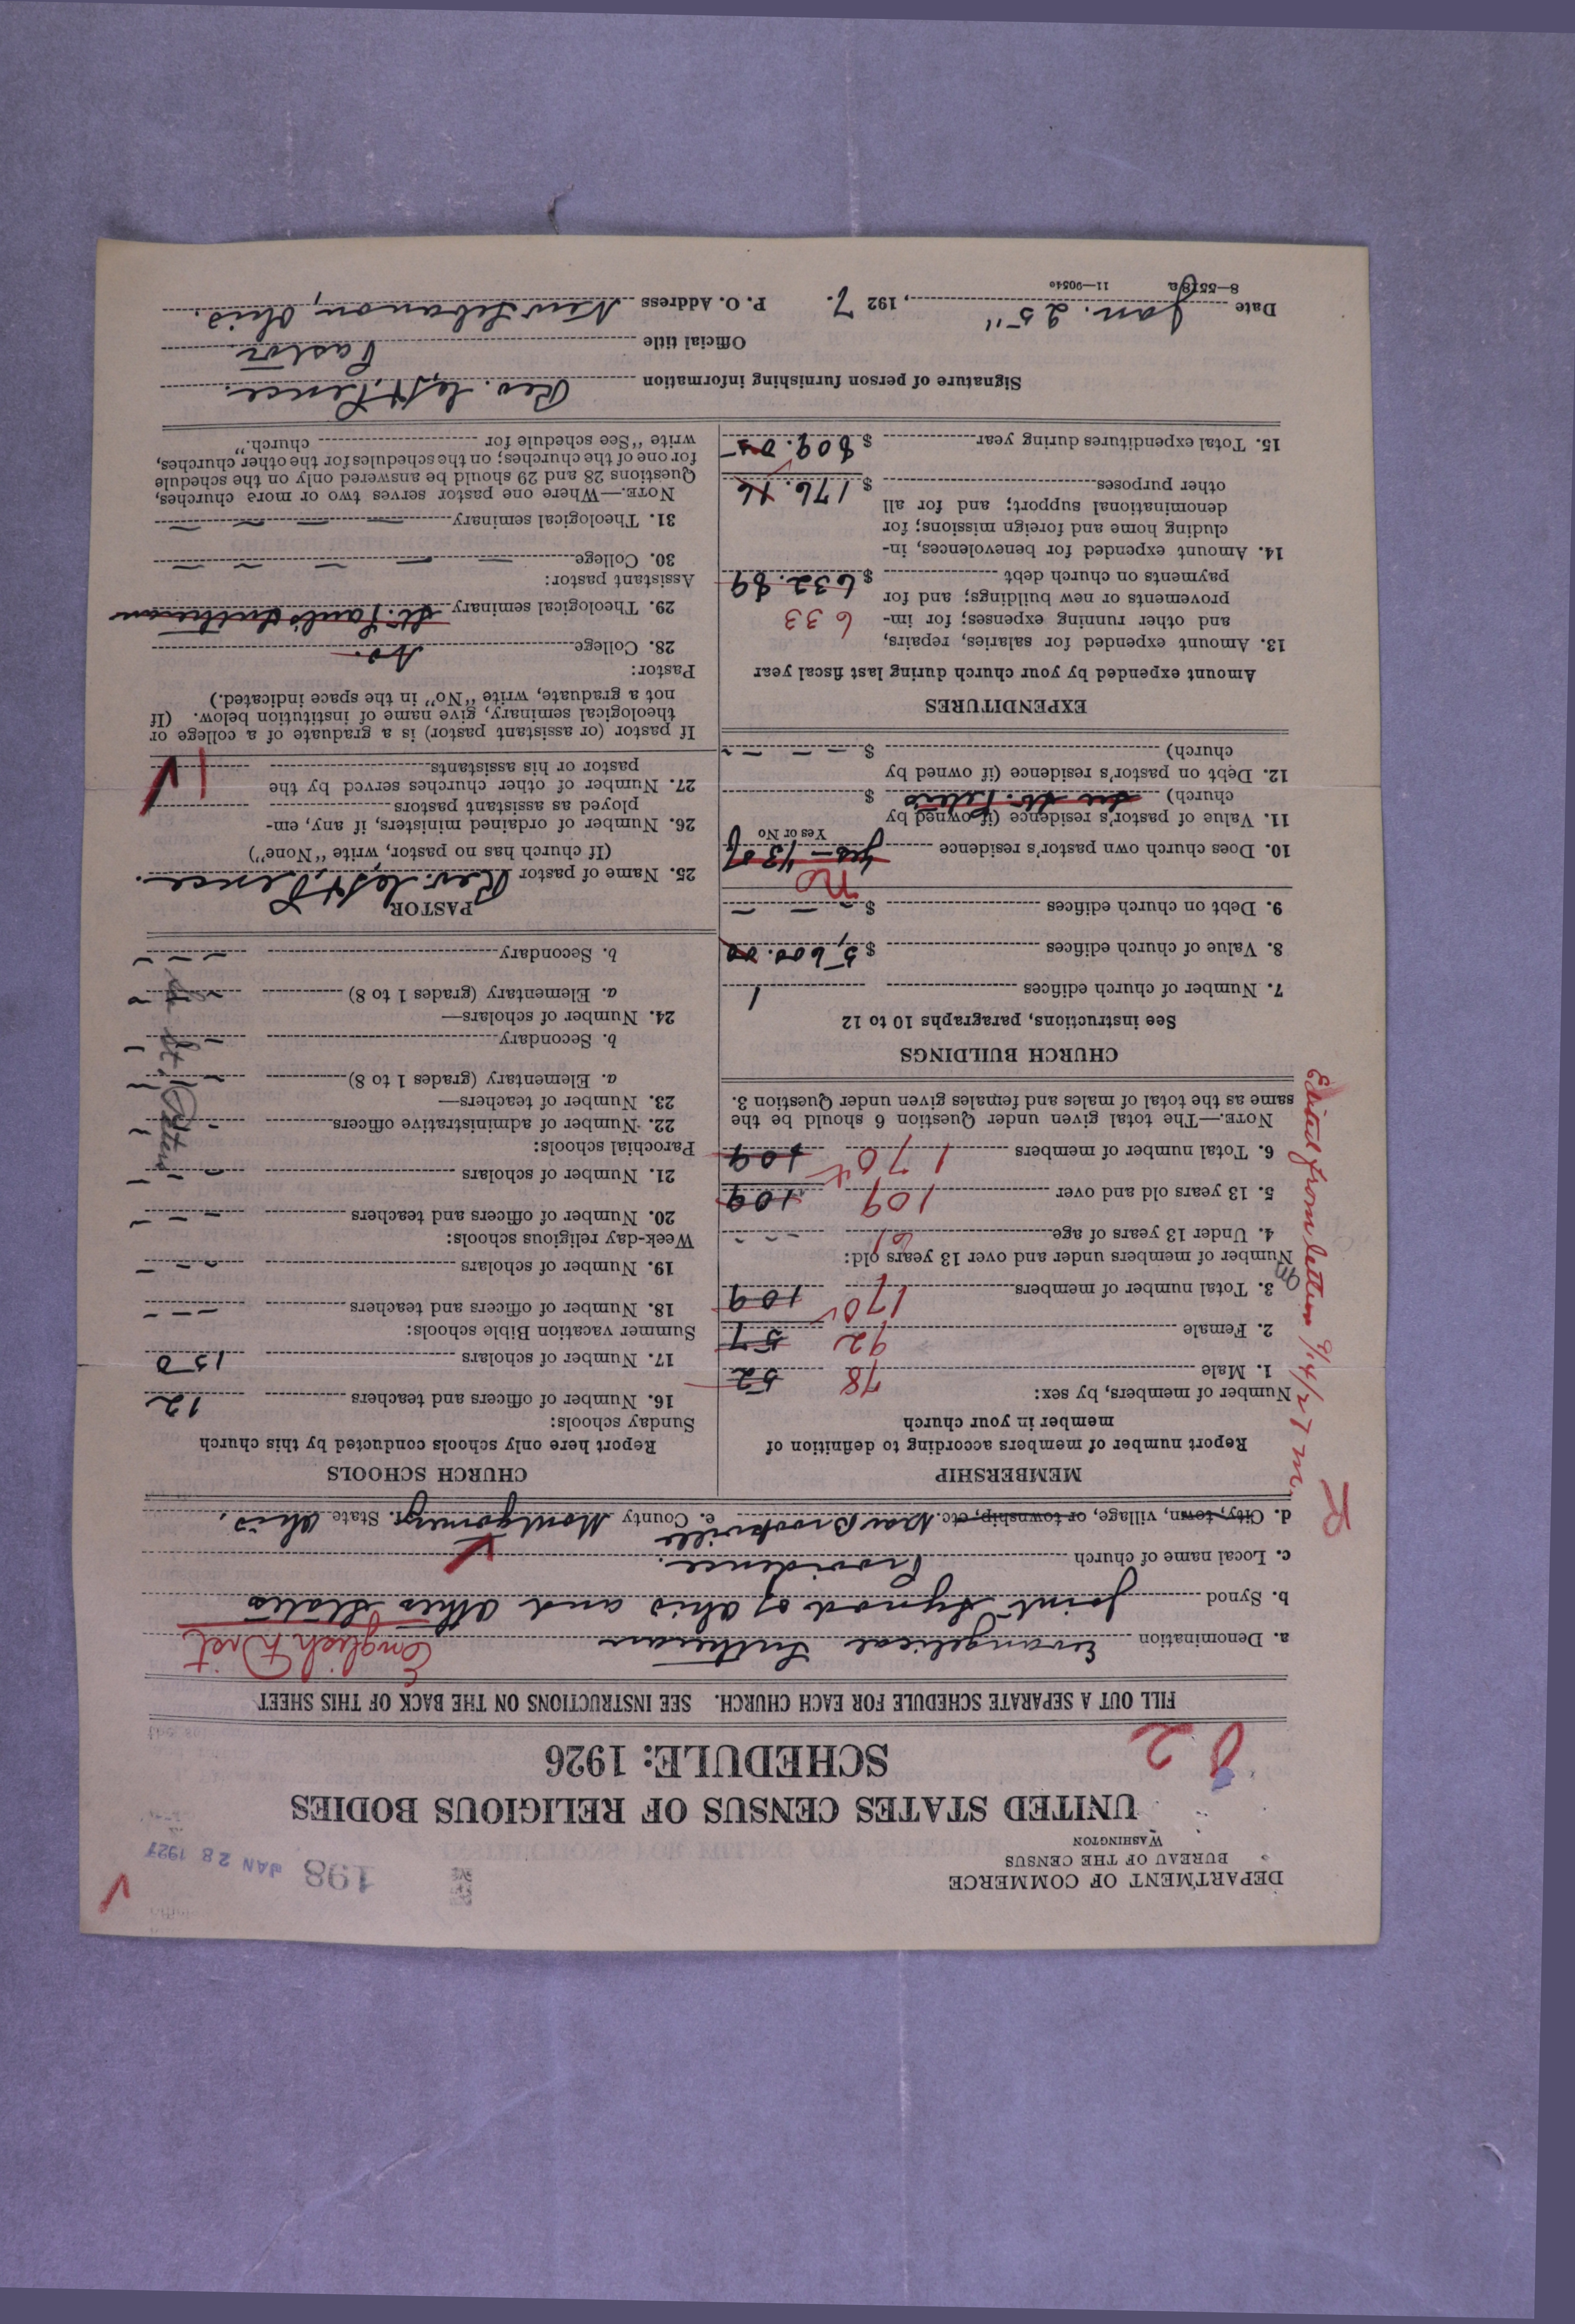 DEPARTMENT OF COMMERCE
BUREAU OF THE CENSUS
WASHINGTON
198 JAN 28 1927
UNITED STATES CENSUS OF RELIGIOUS BODIES
SCHEDULE: 1926
82
FILL OUT A SEPARATE SCHEDULE FOR EACH CHURCH. SEE INSTRUCTIONS ON THE BACK OF THIS SHEET
a. Denomination Evangelical Lutheran English Dist
b. Synod Joint Synod of Ohio and Other States
c. Local name of church Providence.
d. City, town, village, or township, etc. Near Brookville e. County Montgomery. State Ohio.
MEMBERSHIP
Report number of members according to definition of
member in your church
Number of members, by sex:
1. Male 78 52
2. Female 92 57
3. Total number of members 170 109
Number of members under and over 13 years old:
4. Under 13 years of age 61 - - -
5. 13 years old and over 109 109
6. Total number of members 170 109
NOTE.—The total given under Question 6 should be the
same as the total of males and females given under Question 3.
Edited from letter 9/14/27 m
CHURCH BUILDINGS
See instructions, paragraphs 10 to 12
7. Number of church edifices 1
8. Value of church edifices $ 5,600.00
9. Debt on church edifices $ - - -
no
10. Does church own pastor's residence yes -
Yes or No
11. Value of pastor's residence (if owned by
church) see St. Peters $
12. Debt on pastor's residence (if owned by
church) $ - - - -
EXPENDITURES
Amount expended by your church during last fiscal year
13. Amount expended for salaries, repairs,
and other running expenses; for im- 633
provements or new buildings; and for
payments on church debt $ 632.89
14. Amount expended for benevolences, in-
cluding home and foreign missions; for
denominational support; and for all
other purposes $ 176.16
15. Total expenditures during year $ 809.05
CHURCH SCHOOLS
Report here only schools conducted by this church
Sunday schools:
16. Number of officers and teachers 12
17. Number of scholars 150
Summer vacation Bible schools:
18. Number of officers and teachers - - -
19. Number of scholars - - -
Week-day religious schools:
20. Number of officers and teachers - - -
21. Number of scholars - - -
Parochial schools:
22. Number of administrative officers - - -
23. Number of teachers—
a. Elementary (grades 1 to 8) - - -
b. Secondary - - -
24. Number of scholars—
a. Elementary (grades 1 to 8) - - -
b. Secondary - - -
PASTOR
25. Name of pastor Pence.
(If church has no pastor, write "None")
26. Number of ordained ministers, if any, em-
ployed as assistant pastors
27. Number of other churches served by the
pastor or his assistants 1
If pastor (or assistant pastor) is a graduate of a college or
theological seminary, give name of institution below. (If
not a graduate, write "No" in the space indicated.)
Pastor:
28. College No.
29. Theological seminary St. Paul's Lutheran
Assistant pastor:
30. College - - - - -
31. Theological seminary - - - - -
NOTE.—Where one pastor serves two or more churches,
Questions 28 and 29 should be answered only on the schedule
for one of the churches; on the schedules for the other churches,
write "See schedule for church."
Signature of person furnishing information Rev. Pence.
Official title Pastor
Date Jan. 25", 1927. P. O. Address New Lebanon, Ohio.
8—5518a 11—90540